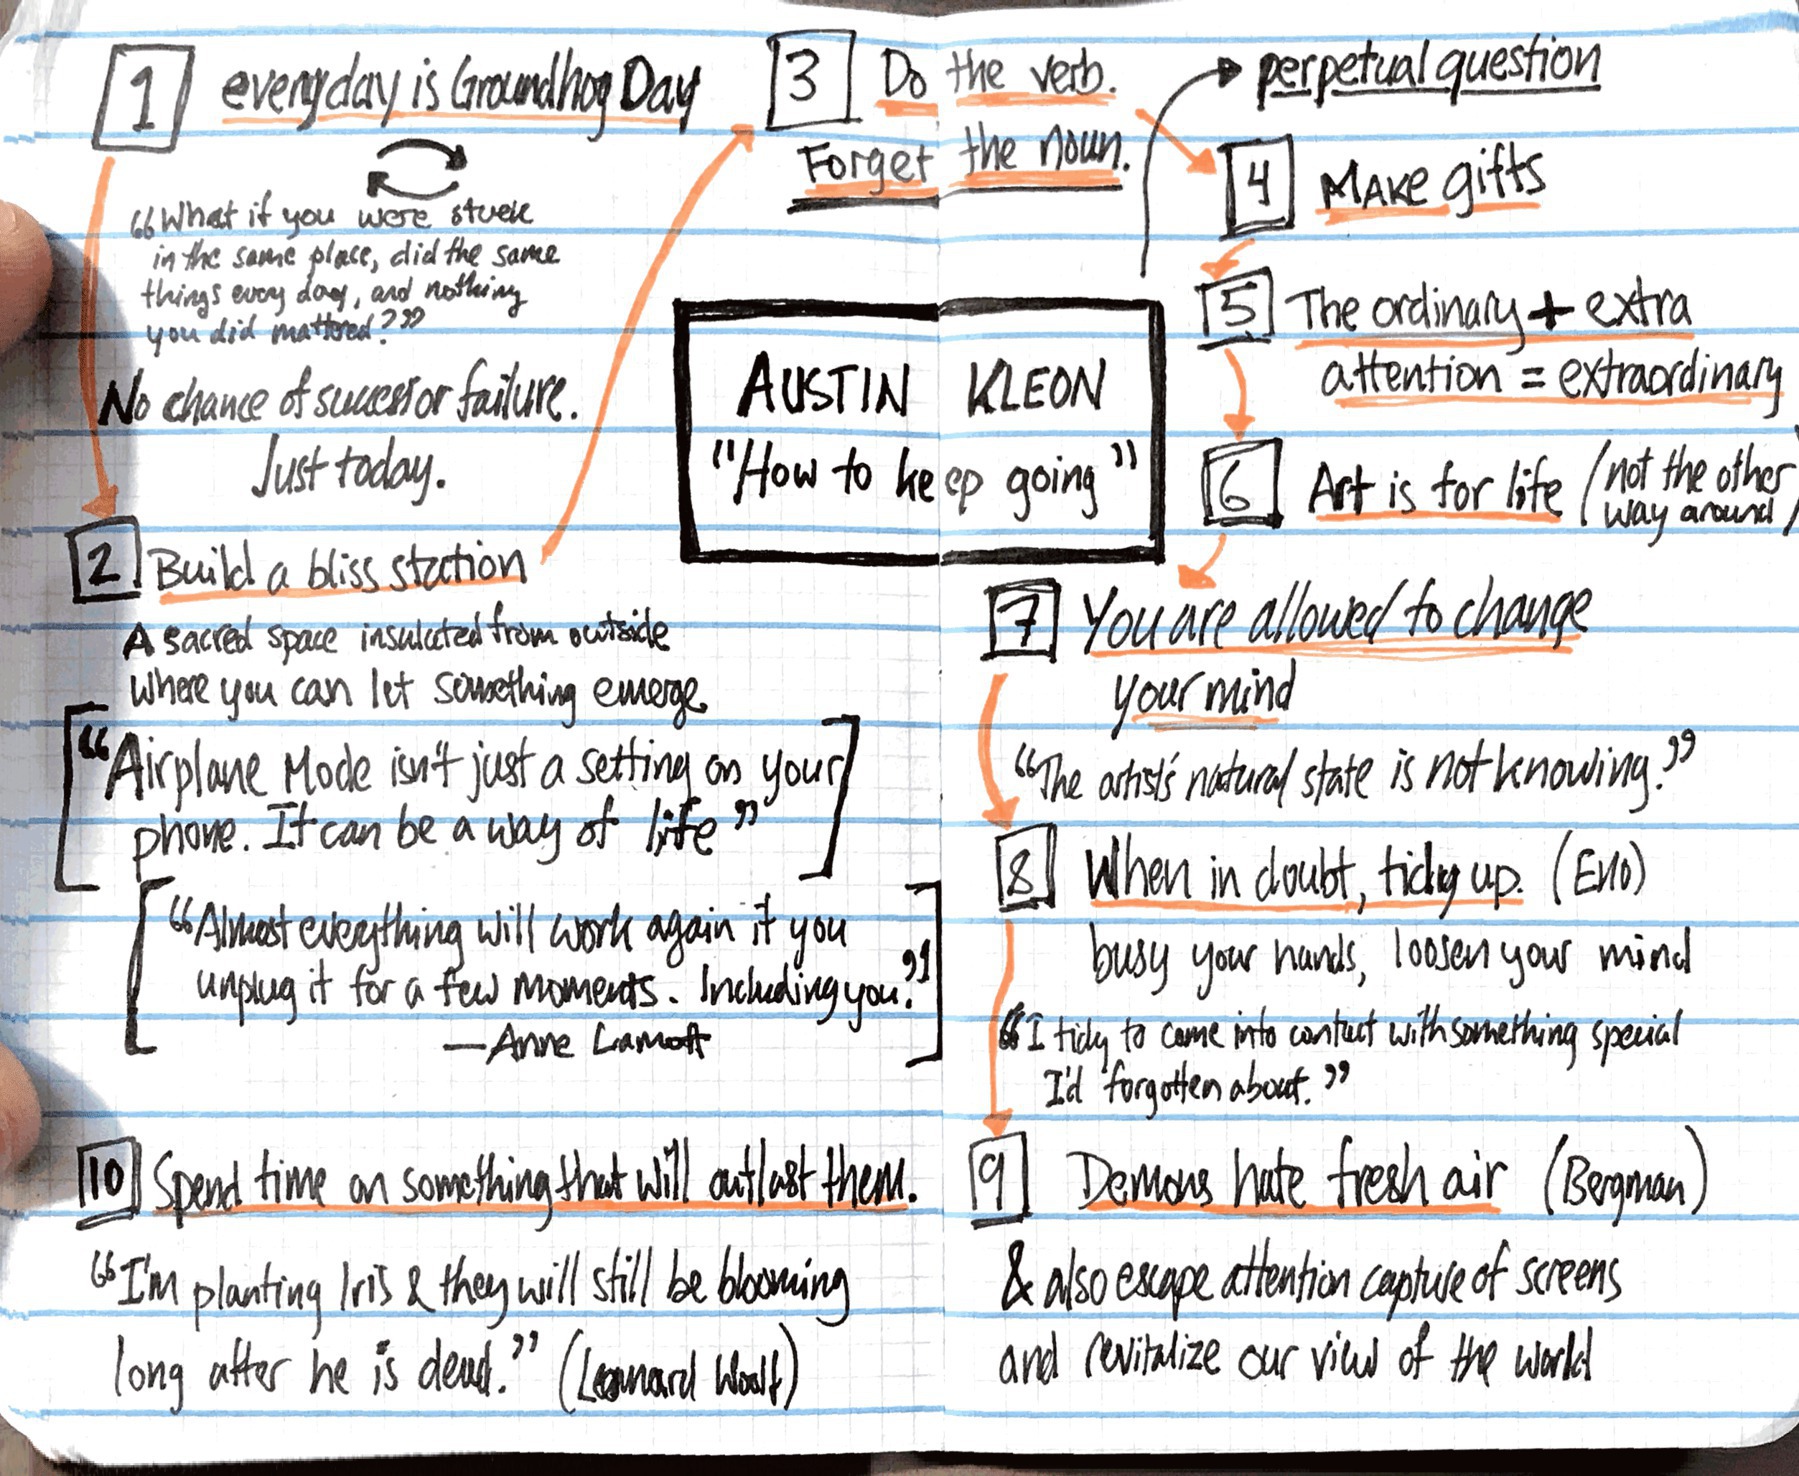 1 everyday is Groundhog Day
“What if you were stuck
in the same place, did the same
things every day, and nothing
you did mattered?”
No chance of success or failure.
Just today.
2 Build a bliss station
A sacred space insulated from outside
where you can let something emerge
“Airplane Mode isn't just a setting on your
phone. It can be a way of life”
“Almost everything will work again if you
unplug it for a few moments. Including you.”
—Anne Lamott
3 Do the verb.
Forget the noun.
AUSTIN KLEON
"How to keep going"
perpetual question
4 MAKE gifts
5 The ordinary + extra
attention = extraordinary
6 Art is for life (not the other
way around)
7 You are allowed to change
your mind
“The artist's natural state is not knowing.”
8 When in doubt, tidy up. (Eno)
busy your hands, loosen your mind
“I tidy to come into contact with something special
I'd forgotten about.”
9 Demons hate fresh air (Bergman)
& also escape attention capture of screens
and revitalize our view of the world
10 Spend time on something that will outlast them.
“I'm planting Iris & they will still be blooming
long after he is dead.” (Leonard Woolf)